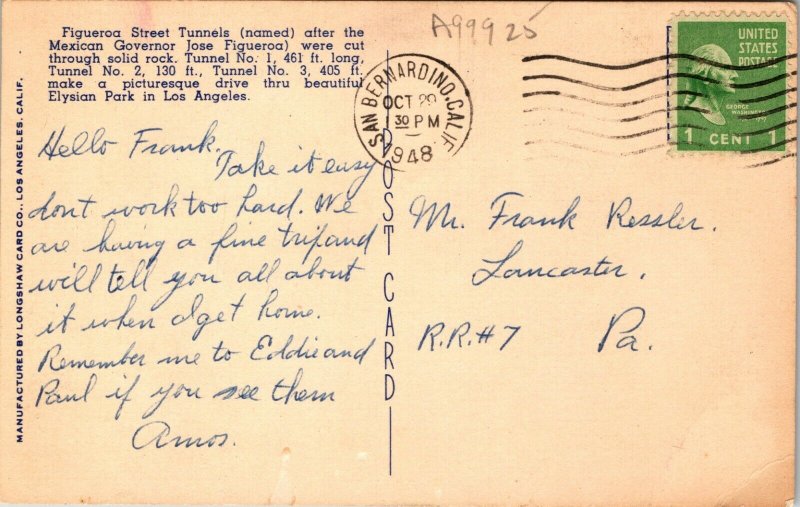 Figueroa Street Tunnels (named) after the
Mexican Governor Jose Figueroa) were cut
through solid rock. Tunnel No. 1, 461 ft. long,
Tunnel No. 2, 130 ft., Tunnel No. 3, 405 ft.
make a picturesque drive thru beautiful
Elysian Park in Los Angeles.
A99925
SAN BERNARDINO, CALIF.
OCT 29
30 PM
1948
UNITED
STATES
POSTAGE
GEORGE
WASHINGTON
1 CENT 1
MANUFACTURED BY LONGSHAW CARD CO., LOS ANGELES, CALIF.
POST CARD
Hello Frank.
Take it easy
dont work too hard. We
are having a fine trip and
will tell you all about
it when I get home.
Remember me to Eddie and
Paul if you see them
Amos.
Mr. Frank Ressler.
Lancaster.
R.R.#7 Pa.